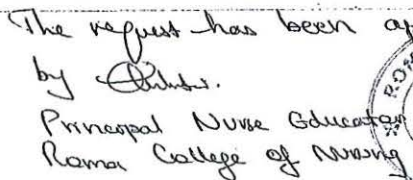 The request has been ap
by
Principal Nurse Educator
Roma College of Nursing
ROM